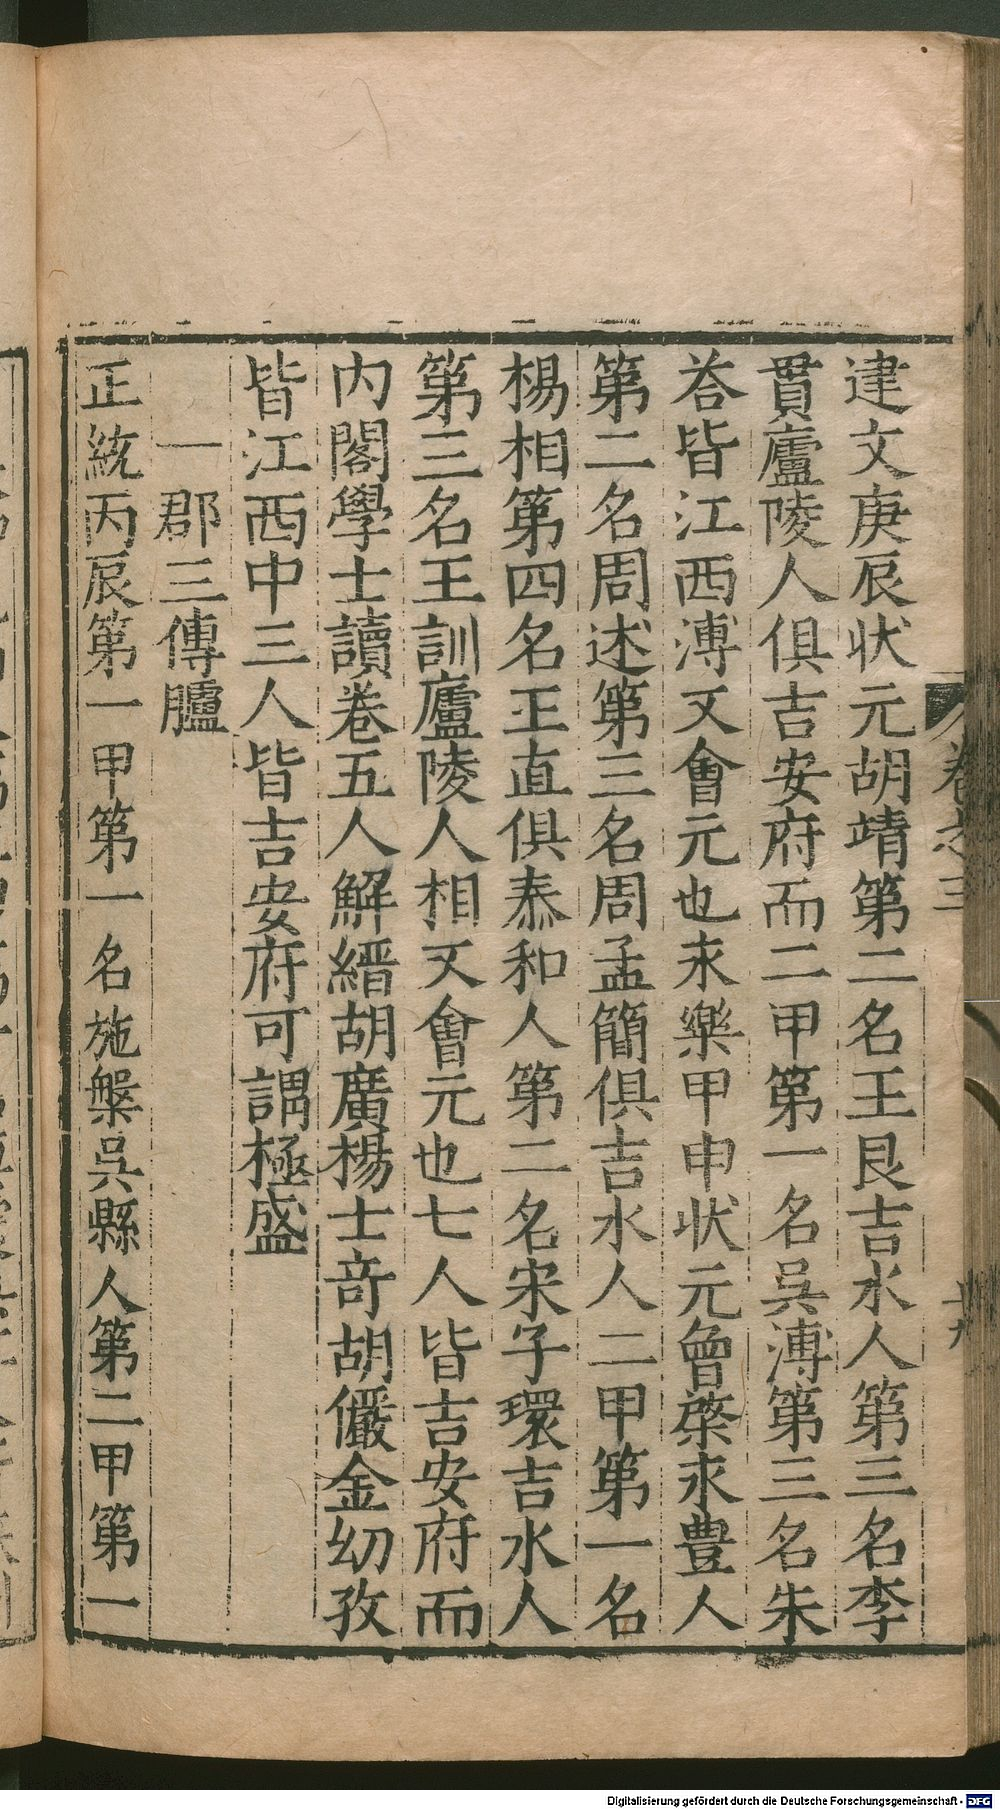 建文庚辰状元胡靖第二名王艮吉水人第三名李
貫廬陵人俱吉安府而二甲第一名吳溥第三名朱
荅皆江西溥又會元也永樂甲申状元曾棨永豊人
第二名周述第三名周孟簡俱吉水人二甲第一名
楊相第四名王直俱泰和人第二名宋子環吉水人
第三名王訓廬陵人相又會元也七人皆吉安府而
内閣學士讀卷五人解縉胡廣楊士竒胡儼金幼孜
皆江西中三人皆吉安府可謂極盛
一郡三傳臚
正統丙辰第一甲第一名施槃吳縣人第二甲第一
卷之三
Digitalisierung gefördert durch die Deutsche Forschungsgemeinschaft - DFG